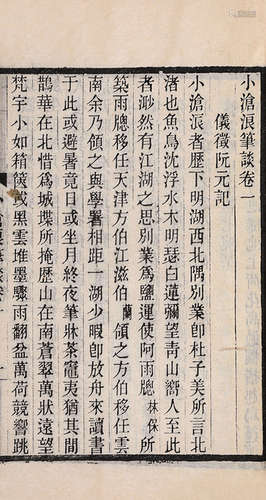 小滄浪筆談卷一
儀徵阮元記
小滄浪者歷下明湖西北隅別業卽杜子美所言北
渚也魚鳥沈浮水木明瑟白蓮彌望青山嚮人至此
者渺然有江湖之思別業爲鹽運使阿雨牕林保所
築雨牕移任天津方伯江滋伯蘭領之方伯移任雲
南余乃領之與學署相距一湖少暇卽放舟來讀書
于此或避暑竟日或坐月終夜筆牀茶竈夷猶其間
鵲華在北惜爲城堞所掩歷山在南蒼翠萬狀遠望
梵宇小如箱篋或黑雲堆墨驟雨翻盆萬荷競響跳